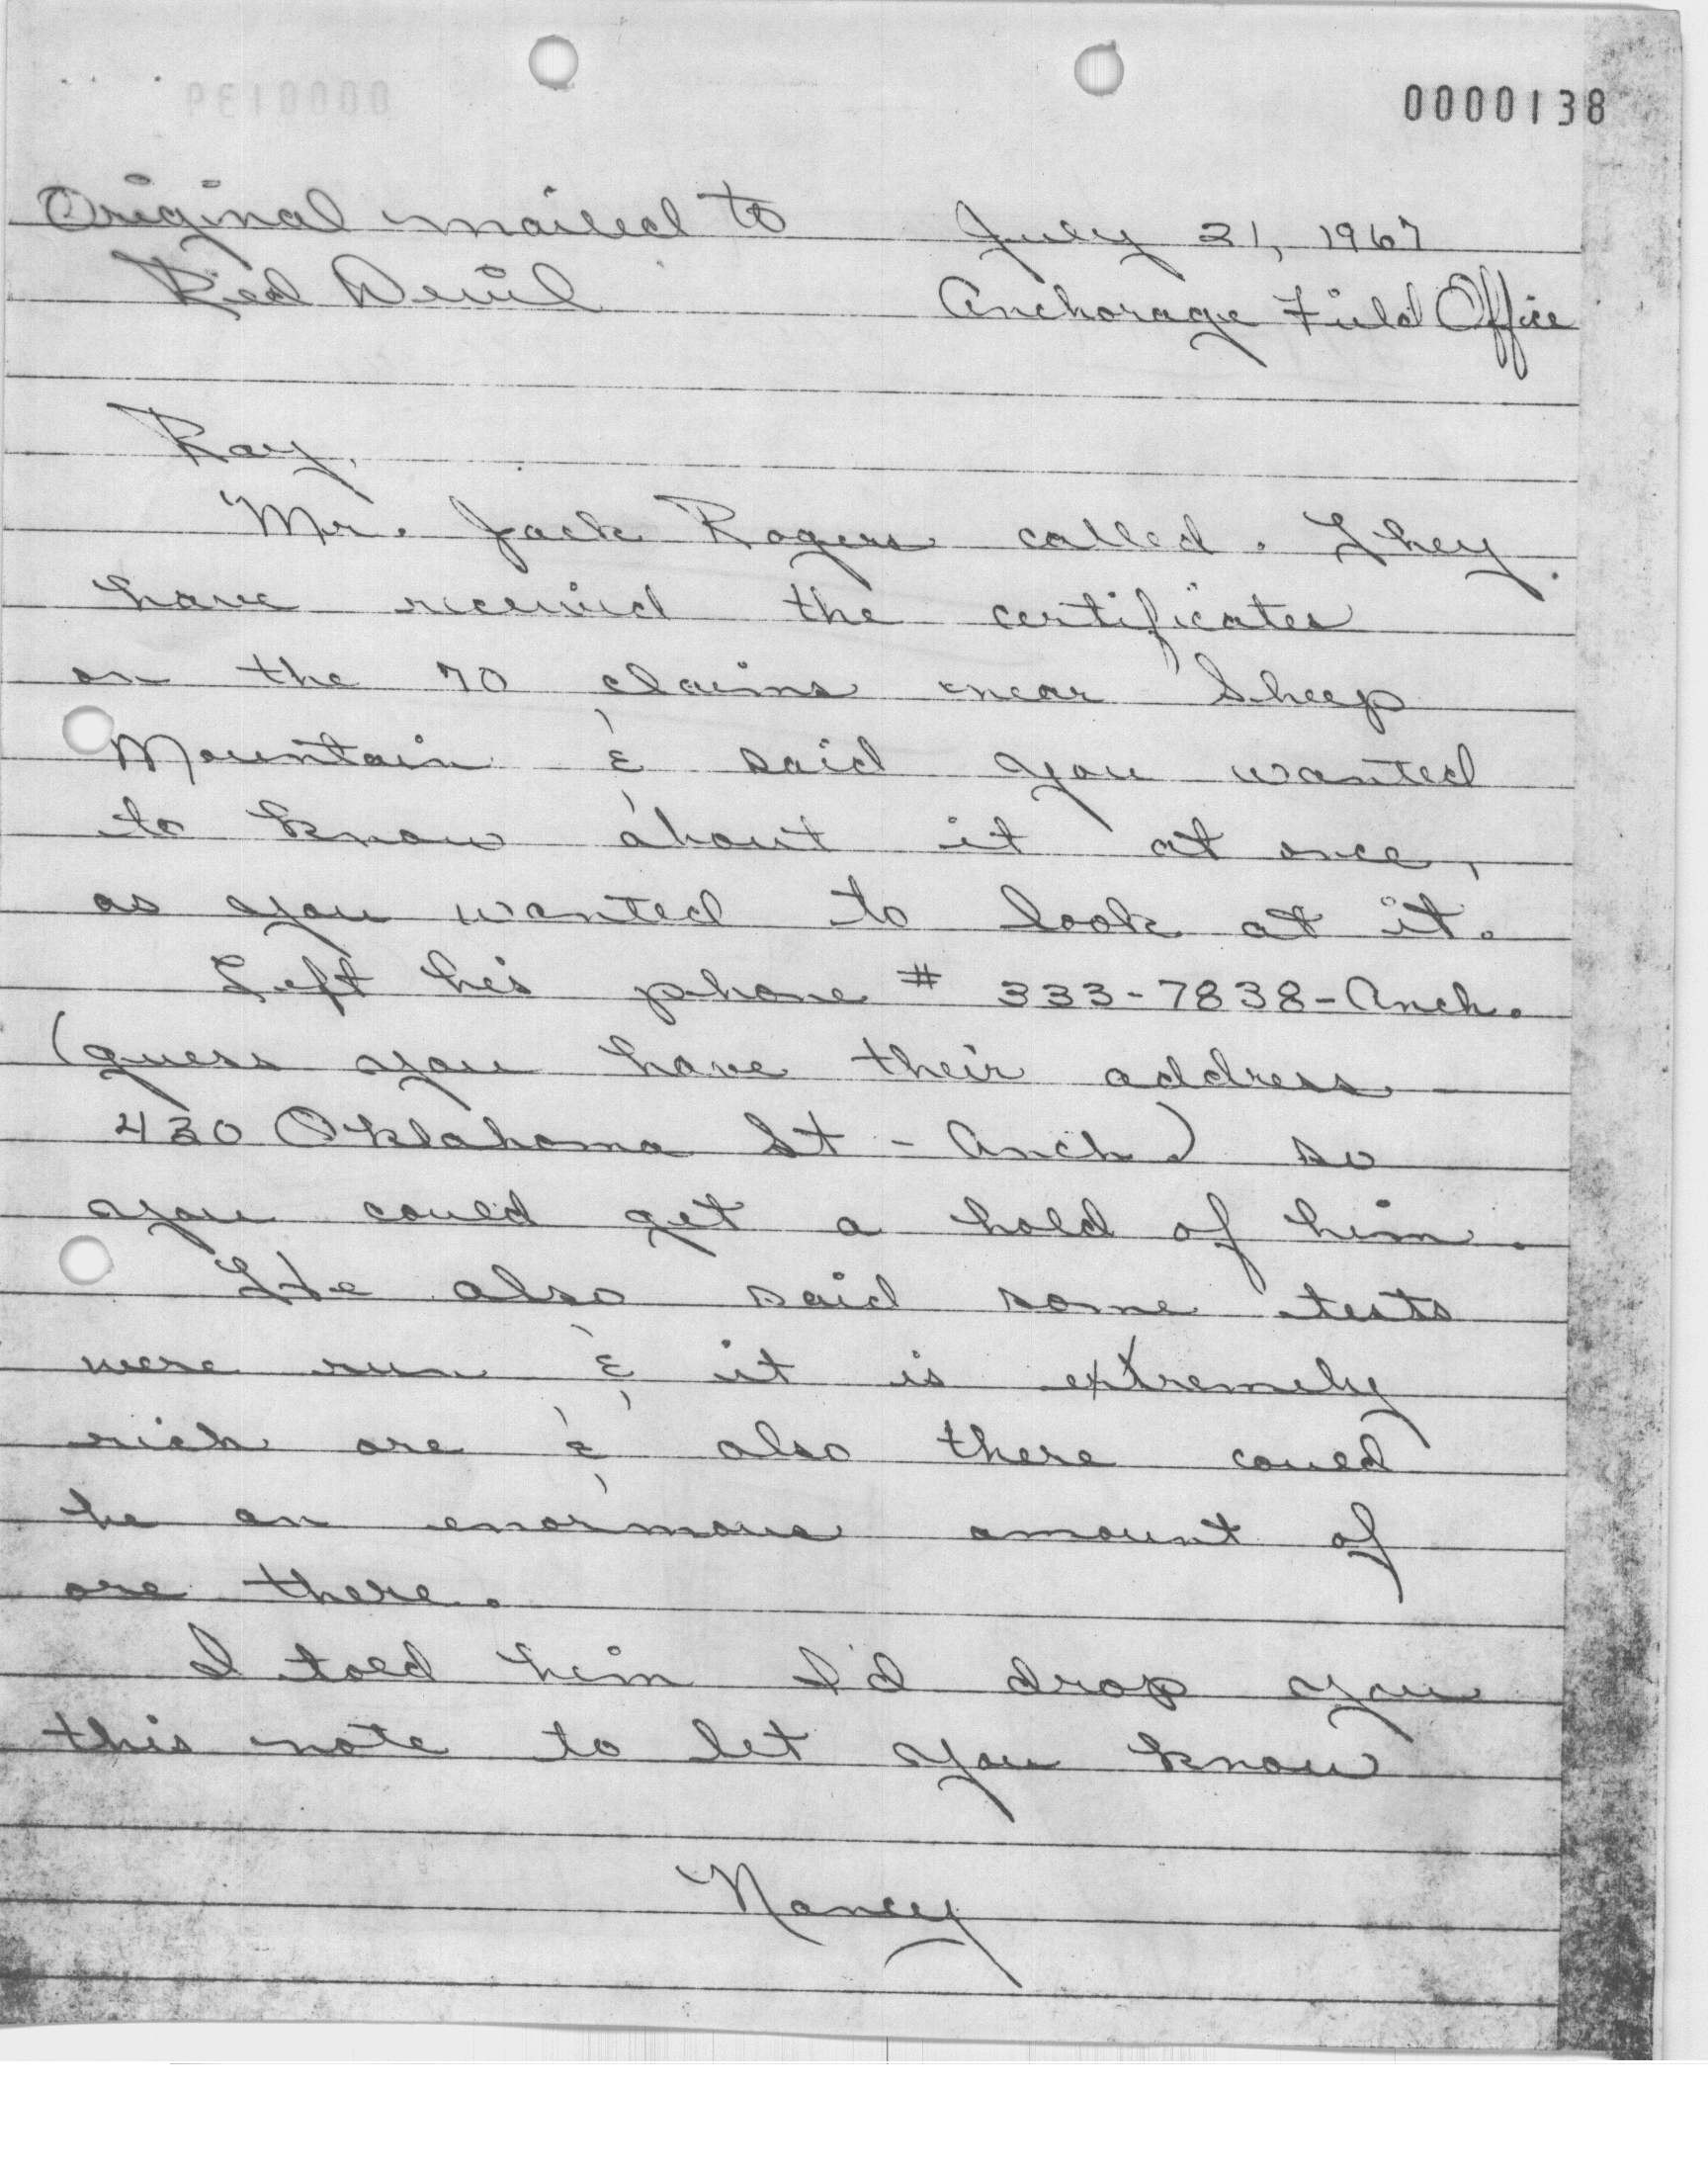 0000138
Original mailed to July 21, 1967
Red Devil Anchorage Field Office
Ray,
Mr. Jack Rogers called. They
have received the certificates
on the 70 claims near Sheep
Mountain & said you wanted
to know about it at once,
as you wanted to look at it.
Left his phone # 333-7838-Anch.
(guess you have their address -
430 Oklahoma St - Anch.) so
you could get a hold of him.
He also said some tests
were run & it is extremely
rich ore & also there could
be an enormous amount of
ore there.
I told him I'd drop you
this note to let you know
Nancy